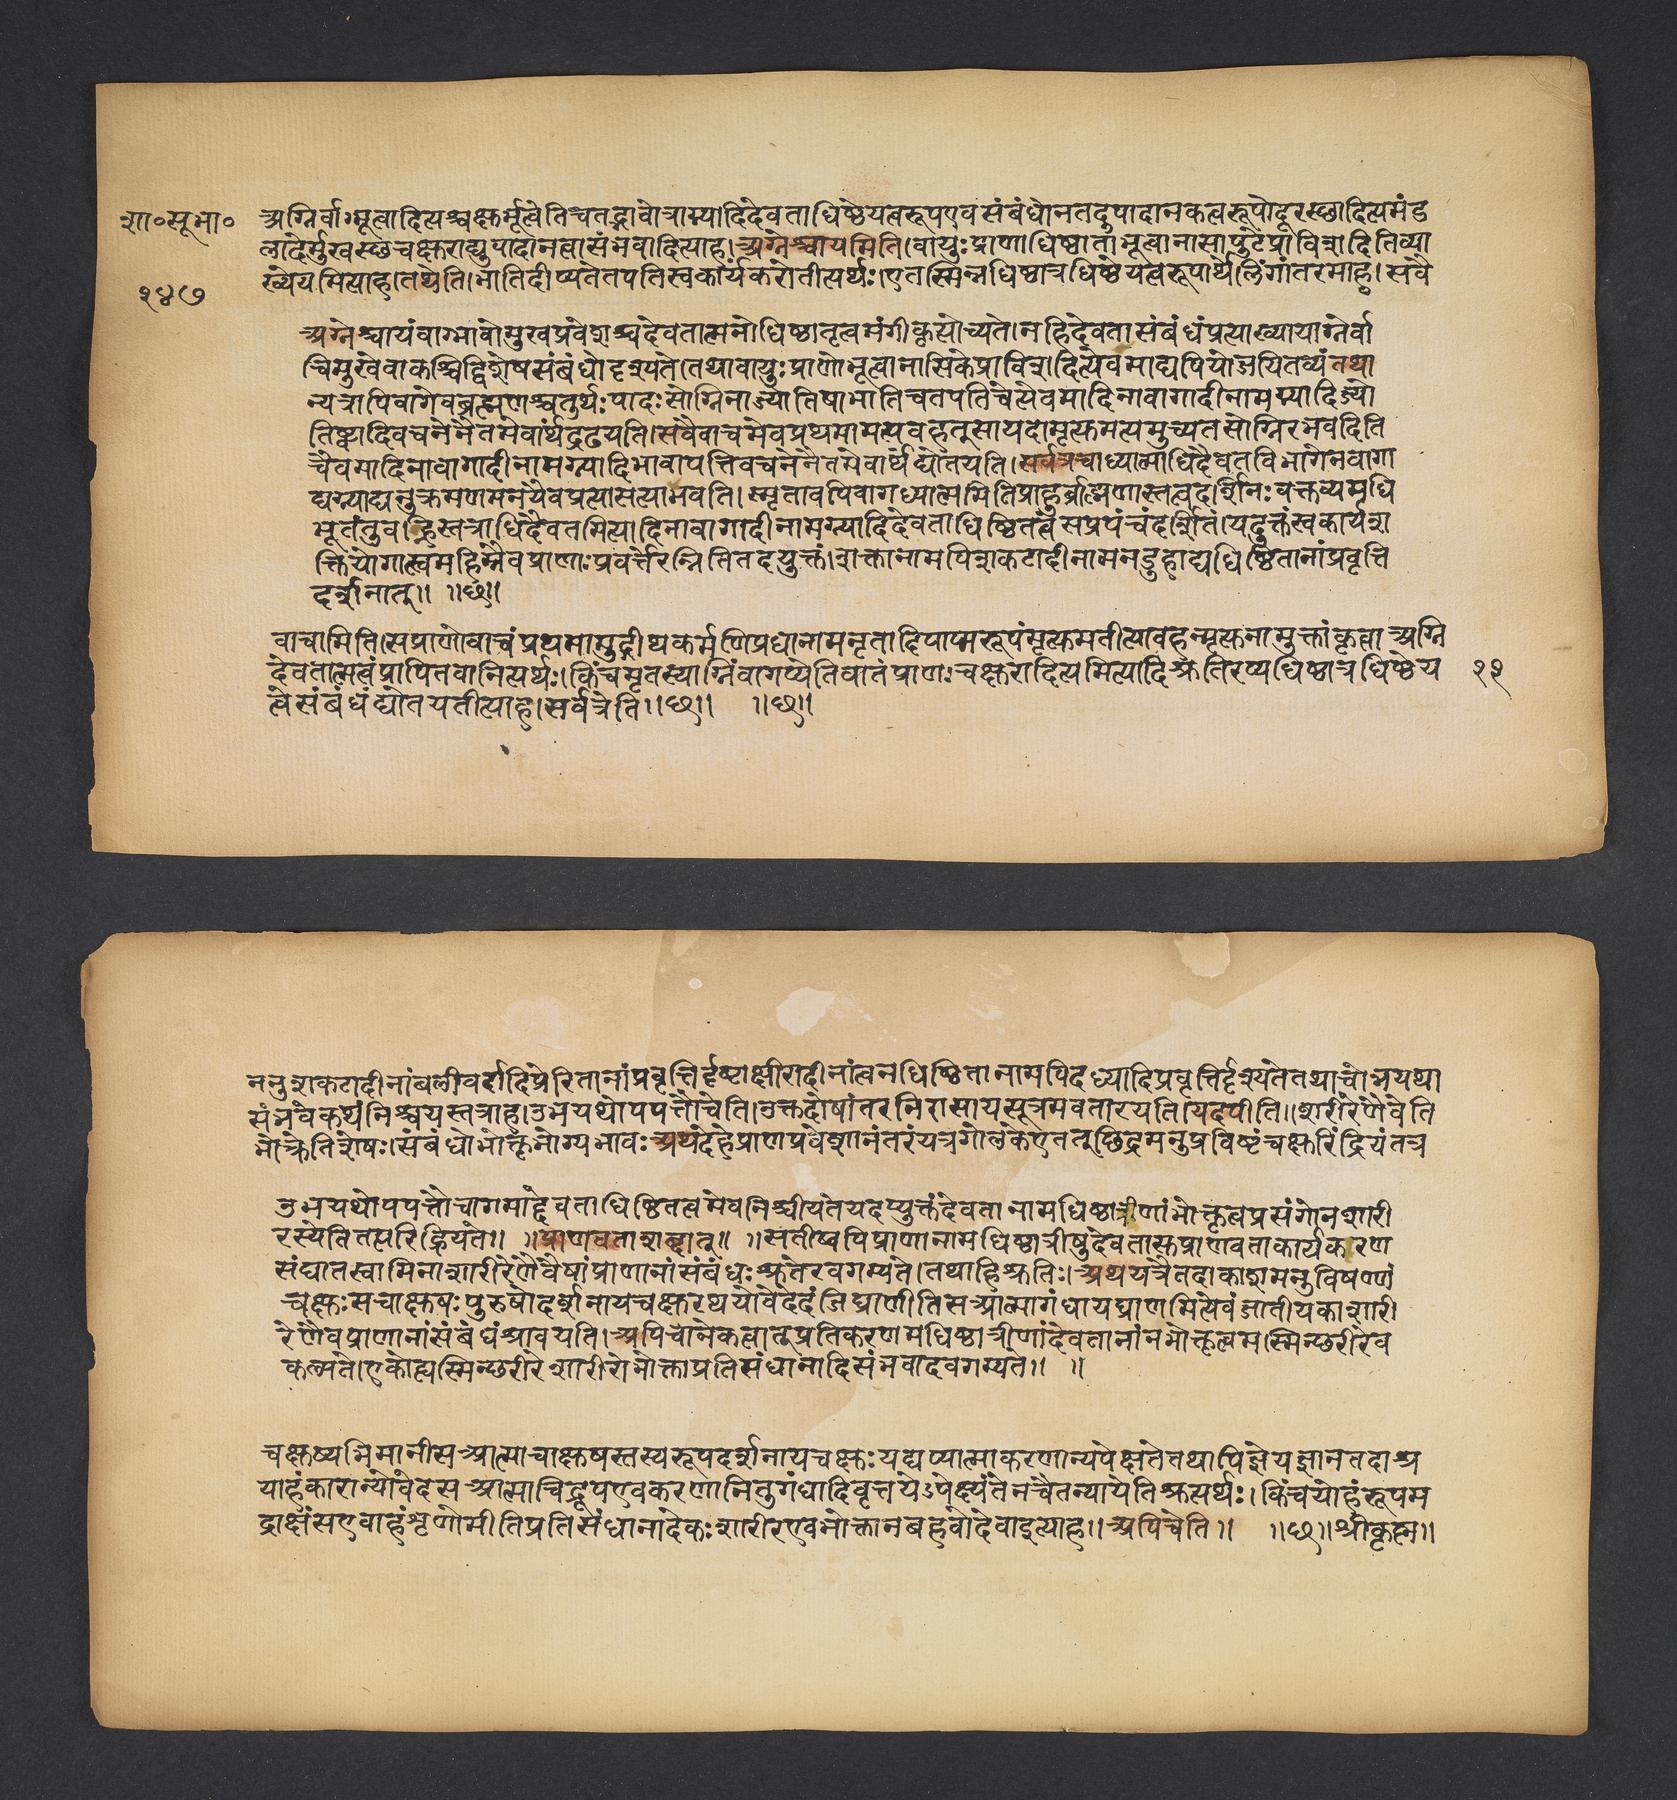 शा॰सू॰भा॰
२४७
अग्निर्वाग्भूत्वादित्यश्चक्षुर्भूत्वेतिचतद्भावोत्राग्न्यादिदेवताधिष्ठेयत्वरूपएवसंबंधोनतदुपादानकत्वरूपोदूरस्छादित्यमंड
लादेर्मुखस्छचक्षुराद्युपादानत्वासंभवादित्याह।अग्नेश्चायमिति।वायुःप्राणाधिष्ठाताभूत्वानासापुटेप्राविशदितिव्या
ख्येयमित्याह।तथेति।भातिदीप्यतेतपतिस्वकार्यंकरोतीत्यर्थः।एतस्मिन्नधिष्ठात्रधिष्ठेयत्वरूपार्थेलिंगांतरमाह।सवै
अग्नेश्चायंवाग्भावोमुखप्रवेशश्चदेवतात्मनोधिष्ठातृत्वमंगीकृत्योच्यते।नहिदेवतासंबंधंप्रत्याख्यायाग्नेर्वा
चिमुखेवाकश्चिद्विशेषसंबंधोदृश्यते।तथावायुःप्राणोभूत्वानासिकेप्राविशदित्येवमाद्यपियोजयितव्यंतथा
न्यत्रापिवागेवब्रह्मणश्चतुर्थःपादःसोग्निनाज्योतिषाभातिचतपतिचेत्येवमादिनावागादीनामग्न्यादिज्यो
तिष्ट्वादिवचनेनैतमेवार्थंद्रढयति।सवैवाचमेवप्रथमामत्यवहत्सायदामृत्युमत्यमुच्यतसोग्निरभवदिति
चैवमादिनावागादीनामग्न्यादिभावापत्तिवचनेनैतमेवार्थंद्योतयति।सर्वत्रचाध्यात्माधिदैवतविभागेनवागा
द्यग्न्याद्यनुक्रमणमनयैवप्रत्यासत्याभवति।स्मृतावपिवागध्यात्ममितिप्राहुर्ब्राह्मणास्तत्वदर्शिनःवक्तव्यमधि
भूतंतुवह्निस्तत्राधिदैवतमित्यादिनावागादीनामग्न्यादिदेवताधिष्ठितत्वंसप्रपंचंदर्शितं।यदुक्तंस्वकार्यश
क्तियोगात्स्वमहिम्नैवप्राणाःप्रवर्त्तेरन्नितितदयुक्तं।शक्तानामपिशकटादीनामनडुहाद्यधिष्ठितानांप्रवृत्ति
दर्शनात्॥ ॥छ॥
वाचामिति।सप्राणोवाचंप्रथमामुद्गीथकर्मणिप्रधानामनृतादिपाप्मरूपंमृत्युमतीत्यावहन्मृत्युनामुक्तांकृत्वाअग्नि
देवतात्मत्वंप्रापितवानित्यर्थः।किंचमृतस्याग्निंवागप्येतिवातंप्राणःचक्षुरादित्यमित्यादिश्रुतिरप्यधिष्ठात्रधिष्ठेय
२२
त्वेसंबंधंद्योतयतीत्याह।सर्वत्रेति॥छ॥ ॥छ॥
ननुशकटादीनांबलीवर्दादिप्रेरितानांप्रवृत्तिर्दृष्टाक्षीरादीनांत्वनधिष्ठितानामपिदध्यादिप्रवृत्तिर्दृश्यतेतथाचोभयथा
संभवेकथंनिश्चयस्तत्राह।उभयथोपपत्तौचेति।उक्तदोषांतरनिरासायसूत्रमवतारयति।यदपीति॥शारीरेणैवेति
भोक्त्रेतिशेषः।संबंधोभोक्तृभोग्यभावःअथदेहेप्राणप्रवेशानंतरंयत्रगोलकेएतत्छिद्रमनुप्रविष्टंचक्षुरिंद्रियंतत्र
उभयथोपपत्तौचागमाद्देवताधिष्ठितत्वमेवनिश्चीयतेयदप्युक्तंदेवतानामधिष्ठात्रीणांभोक्तृत्वप्रसंगोनशारी
रस्येतितत्परिह्रियते॥ ॥प्राणवताशब्दात्॥ ॥सतीष्वपिप्राणानामधिष्ठात्रीषुदेवतासुप्राणवताकार्यकरण
संघातस्वामिनाशारीरेणैवैषांप्राणानांसंबंधःश्रुतेरवगम्यते।तथाहिश्रुतिः।अथयत्रैतदाकाशमनुविषण्णं
चक्षुःसचाक्षुषःपुरुषोदर्शनायचक्षुरथयोवेदेदंजिघ्राणीतिसआत्मागंधायघ्राणमित्येवंजातीयकाशारी
रेणैवप्राणानांसंबंधंश्रावयति।अपिचानेकत्वात्प्रतिकरणमधिष्ठात्रीणांदेवतानांनभोक्तृत्वमस्मिन्छरीरेव
कल्पते।एकोह्यस्मिन्छरीरेशारीरोभोक्ताप्रतिसंधानादिसंभवादवगम्यते॥ ॥
चक्षुष्यभिमानीसआत्माचाक्षुषस्तस्यरूपदर्शनायचक्षुःयद्यप्यात्माकरणान्यपेक्षतेतथापिज्ञेयज्ञानतदाश्र
याहंकारान्योवेदसआत्माचिद्रूपएवकरणानितुगंधादिवृत्तयेऽपेक्ष्यंतेनचैतन्यायेतिश्रुत्यर्थः।किंचयोहंरूपम
द्राक्षंसएवाहंशृणोमीतिप्रतिसंधानादेकःशारीरएवभोक्तानबहवोदेवाइत्याह॥अपिचेति॥ ॥छ॥श्रीकृष्ण॥